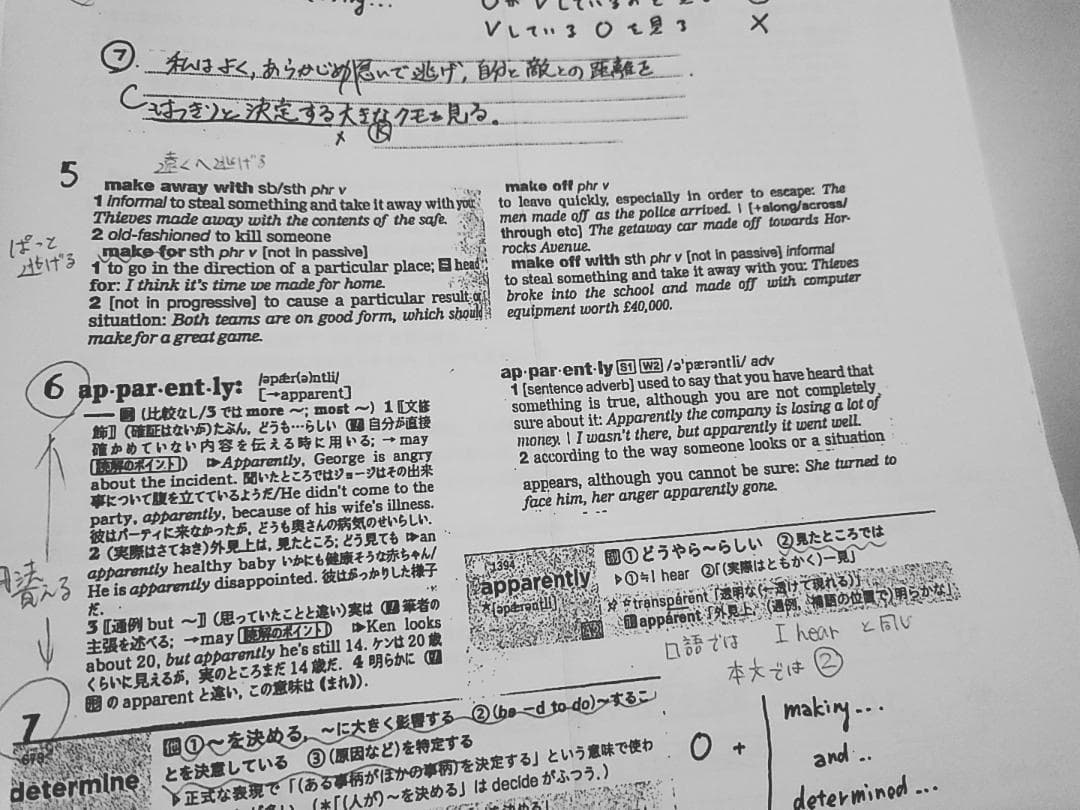 Vしている O を見る ×
⑦ 私はよく, あらかじめ急いで逃げ, 自分と敵との距離を
はっきりと決定する大きなクモを見る。
5
遠くへ逃げる
make away with sb/sth phr v
1 informal to steal something and take it away with you:
Thieves made away with the contents of the safe.
2 old-fashioned to kill someone
make for sth phr v [not in passive]
1 to go in the direction of a particular place; head
for: I think it's time we made for home.
2 [not in progressive] to cause a particular result or
situation: Both teams are on good form, which should
make for a great game.
ぱっと
逃げる
make off phr v
to leave quickly, especially in order to escape: The
men made off as the police arrived. | [+along/across/
through etc] The getaway car made off towards Hor-
rocks Avenue.
make off with sth phr v [not in passive] informal
to steal something and take it away with you: Thieves
broke into the school and made off with computer
equipment worth £40,000.
6 ap·par·ent·ly: /əpǽr(ə)ntli/
[→apparent]
── 副 (比較なし/3 では more ～; most ～) 1 〚文修
飾〛(確証はないが)たぶん, どうも…らしい (自分が直接
確かめていない内容を伝える時に用いる; → may
読解のポイント) ▶Apparently, George is angry
about the incident. 聞いたところではジョージはその出来
事について腹を立てているようだ/He didn't come to the
party, apparently, because of his wife's illness.
彼はパーティに来なかったが, どうも奥さんの病気のせいらしい.
2 (実際はさておき)外見上は, 見たところ; どう見ても ▶an
apparently healthy baby いかにも健康そうな赤ちゃん/
He is apparently disappointed. 彼はがっかりした様子
だ.
3 〚通例 but ～〛(思っていたことと違い)実は (筆者の
主張を述べる; →may 読解のポイント) ▶Ken looks
about 20, but apparently he's still 14. ケンは 20 歳
くらいに見えるが, 実のところまだ 14 歳だ. 4 明らかに (
形 の apparent と違い, この意味は《まれ》).
覚える
ap·par·ent·ly S1 W2 /ə'pærəntli/ adv
1 [sentence adverb] used to say that you have heard that
something is true, although you are not completely
sure about it: Apparently the company is losing a lot of
money. | I wasn't there, but apparently it went well.
2 according to the way someone looks or a situation
appears, although you cannot be sure: She turned to
face him, her anger apparently gone.
1394
apparently
*[əpǽrəntli]
副 ①どうやら～らしい ②見たところでは
▷①≒I hear ②「(実際はともかく)一見」
☆transpárent「透明な(←透けて現れる)」
形 appárent「外見上, (通例, 補語の位置で)明らかな」
口語では I hear と同じ
本文では ②
7
determine
他 ①～を決める, ～に大きく影響する ②(be –d to do)～するこ
とを決意している ③(原因など)を特定する
▷正式な表現で「(ある事柄がほかの事柄)を決定する」という意味で使わ
(*「(人が)～を決める」は decide がふつう.)
O + making...
and ..
determined ...